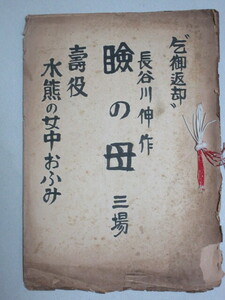 乞御返却
長谷川伸作
瞼の母 三場
壽役
水熊の女中おふみ